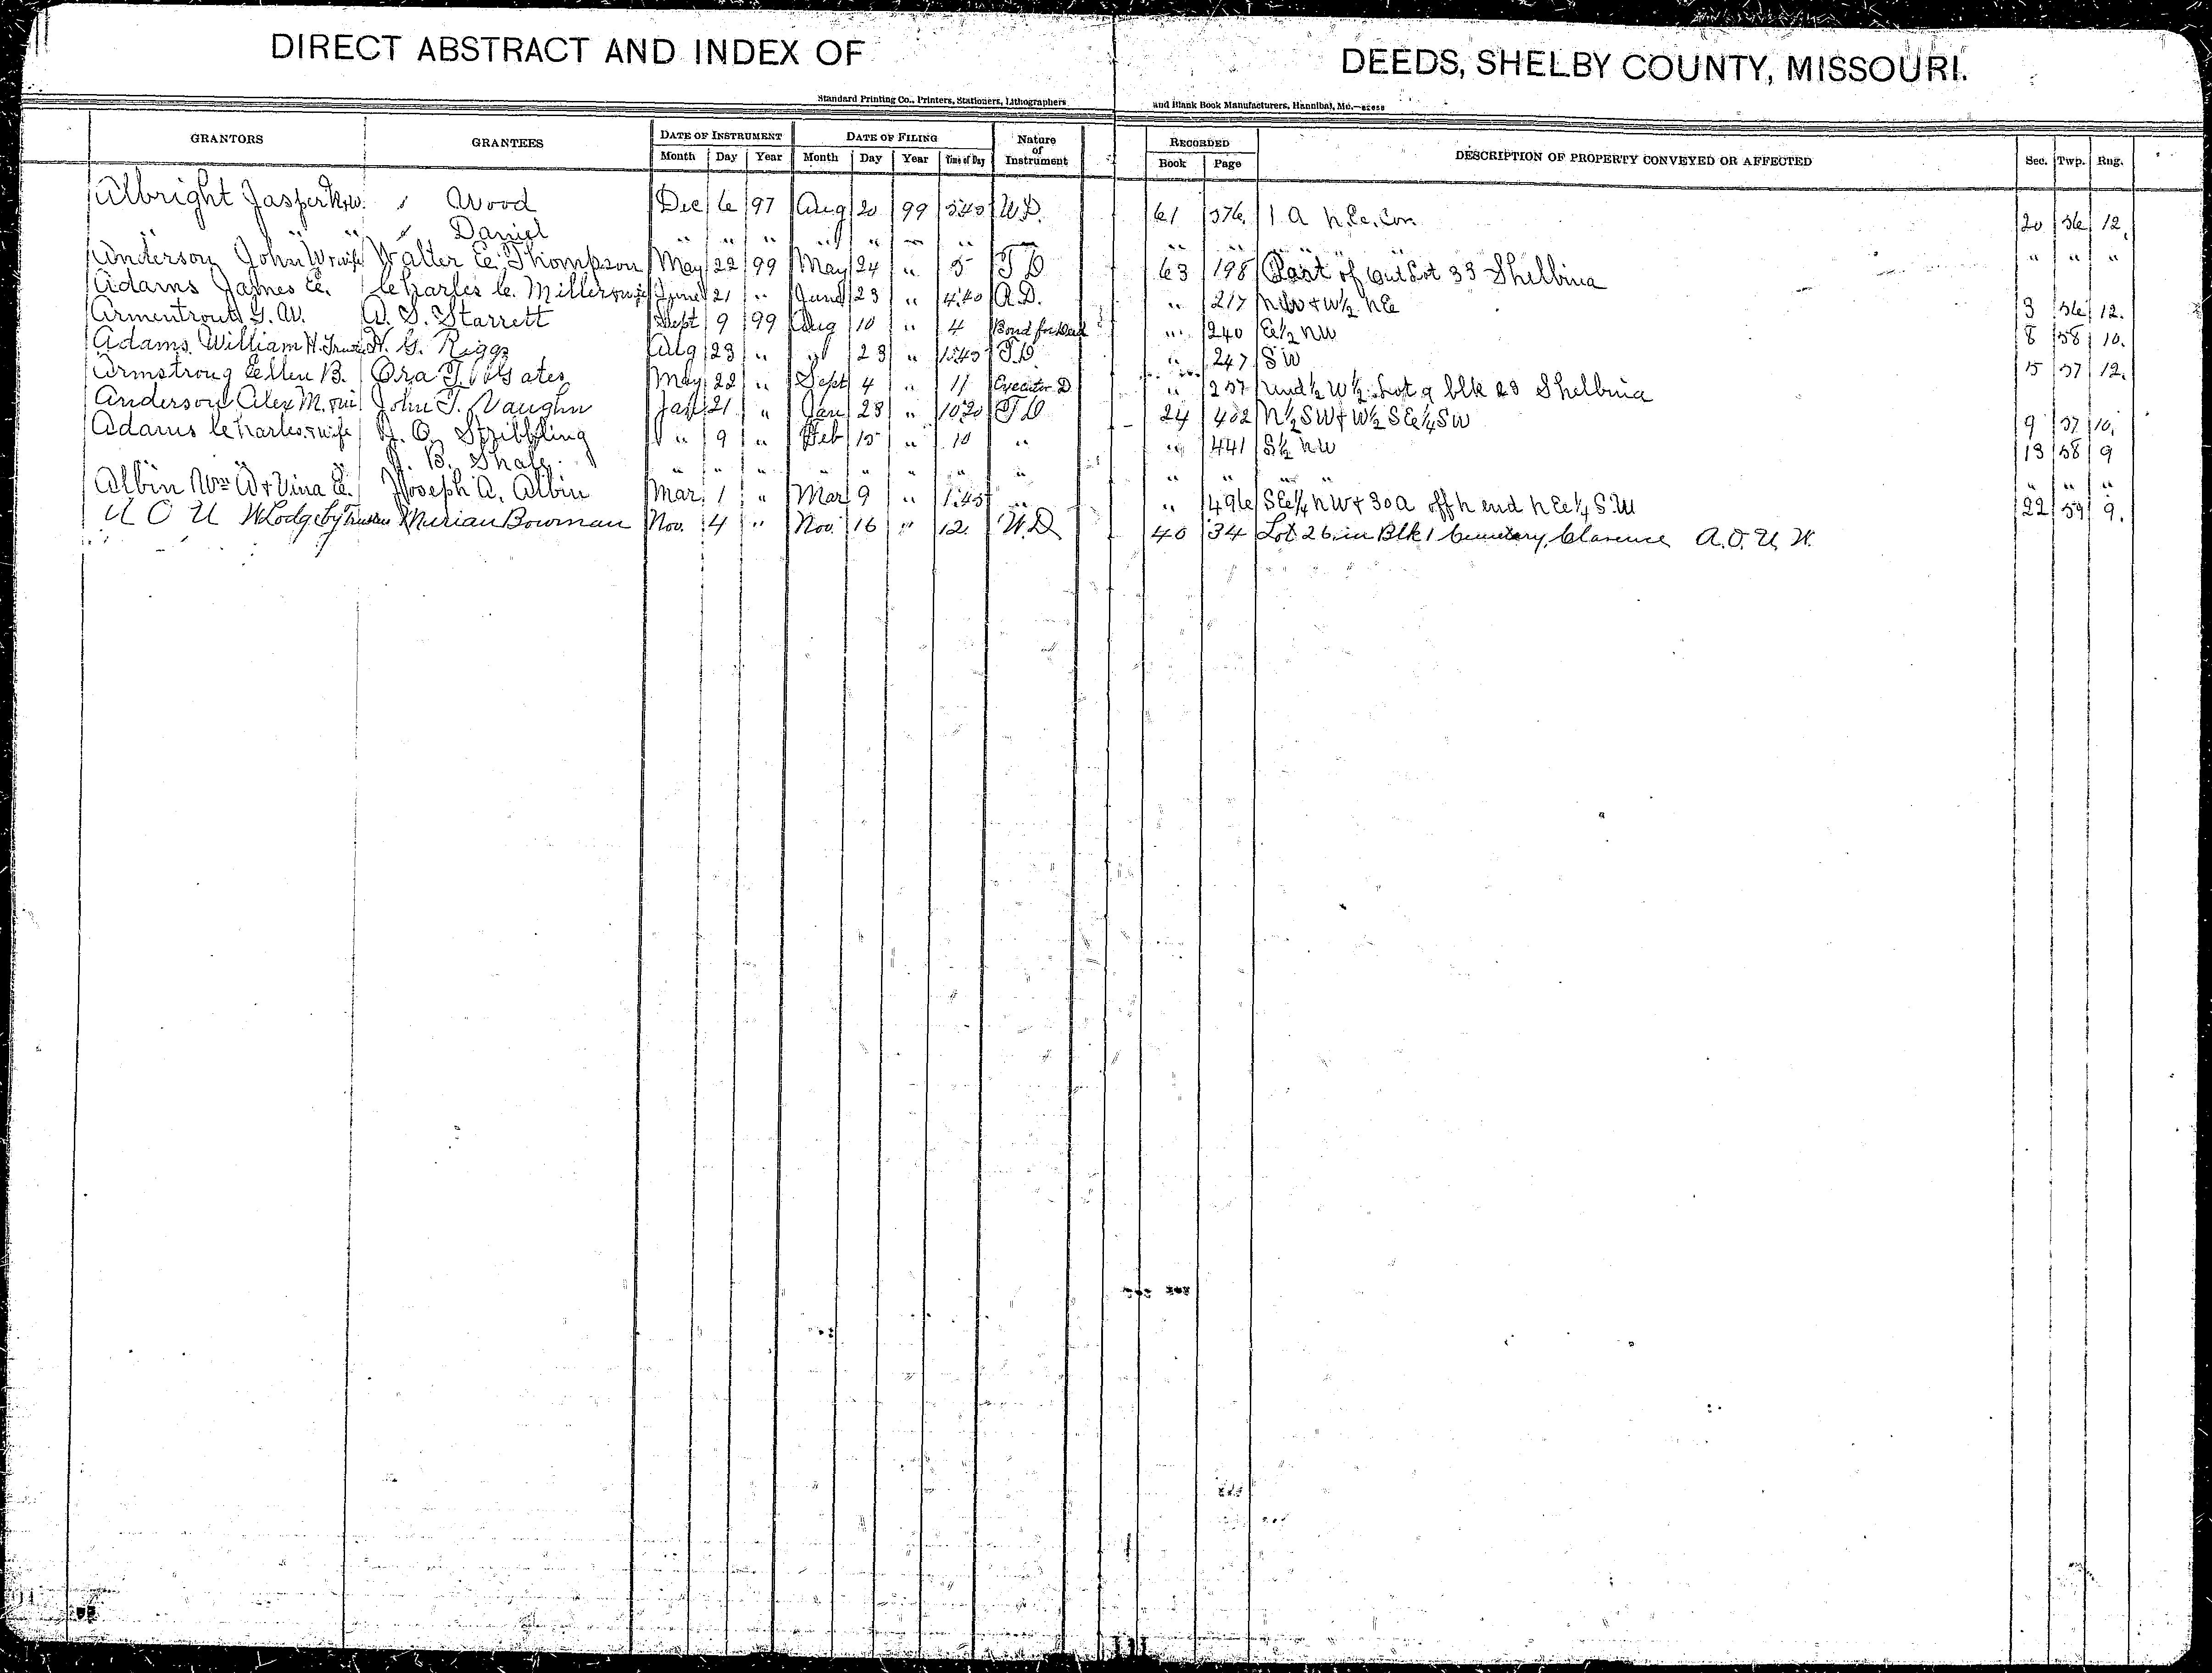 DIRECT ABSTRACT AND INDEX OF DEEDS, SHELBY COUNTY, MISSOURI.
Standard Printing Co., Printers, Stationers, Lithographers and Blank Book Manufacturers, Hannibal, Mo.
GRANTORS GRANTEES DATE OF INSTRUMENT DATE OF FILING Nature of Instrument RECORDED DESCRIPTION OF PROPERTY CONVEYED OR AFFECTED Sec. Twp. Rng.
Month Day Year Month Day Year Time of Day Book Page
Albright Jasper Wood Dec 6 97 Aug 20 99 W.D. 61 576 1 A N.E. Cor. 20 56 12.
" " Daniel " " " " " " " " " " " "
Anderson John W & wife Walter E. Thompson May 22 99 May 24 " 5 T D 63 198 Part of Out Lot 33 Shelbina
Adams James E. Charles C. Miller June 21 " June 23 " 4.40 A.D. " 217 NW & W½ NE 3 56 12.
Armentrout G. W. A. S. Starrett Sept 9 99 Aug 10 " 4 Bond for Deed " 240 E½ NW 8 58 10.
Adams William H. H. G. Riggs Aug 23 " " 23 " T.D " 247 SW 15 57 12.
Armstrong Ellen B. Ora T. Gates May 22 " Sept 4 " 11 Executor D " 257 Und ½ W½ Lot 9 blk 23 Shelbina
Anderson Alex M. John T. Vaughn Jan 21 " Jan 28 " 10.20 T D 24 402 N½ SW & W½ SE¼ SW 9 57 10.
Adams Charles & wife J. O. Stribbling " 9 " Feb 15 " 10 " " 441 S½ NW 13 58 9
J. B. Shale " " " " " " " " " " " " " "
Albin Wm W & Vina E. Joseph A. Albin Mar. 1 " Mar 9 " 1.45 " " 496 SE¼ NW & 30 a off N end NE¼ S.W 22 59 9.
A O U W Lodge by Trustees Miriam Bowman Nov. 4 " Nov. 16 " 12. W.D 40 34 Lot 26 in Blk 1 Cemetery, Clarence A.O.U.W.